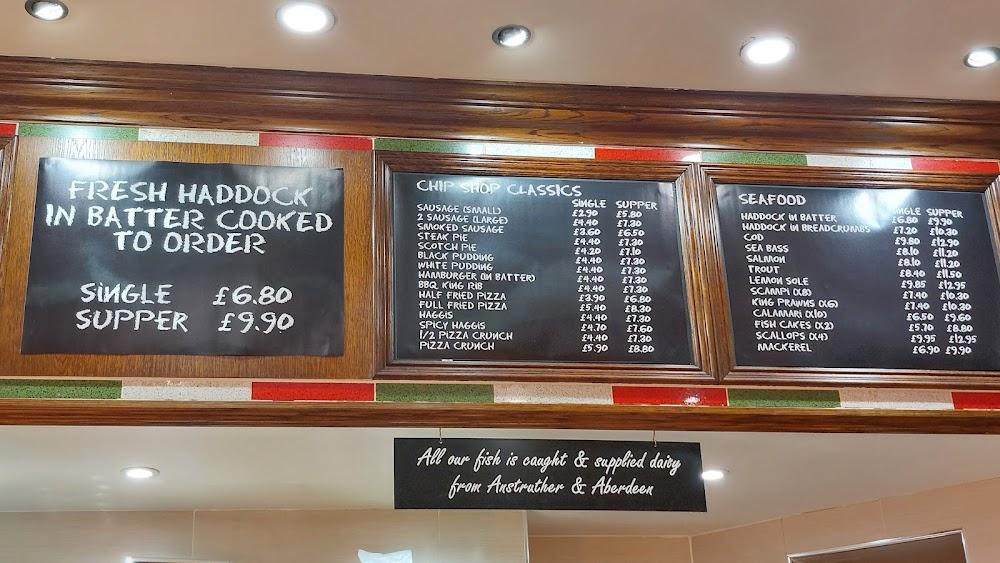 FRESH HADDOCK
IN BATTER COOKED
TO ORDER
SINGLE £6.80
SUPPER £9.90
CHIP SHOP CLASSICS
SINGLE SUPPER
SAUSAGE (SMALL) £2.90 £5.80
2 SAUSAGE (LARGE) £4.40 £7.30
SMOKED SAUSAGE £3.60 £6.50
STEAK PIE £4.40 £7.30
SCOTCH PIE £4.20 £7.10
BLACK PUDDING £4.40 £7.30
WHITE PUDDING £4.40 £7.30
HAMBURGER (IN BATTER) £4.40 £7.30
BBQ KING RIB £4.40 £7.30
HALF FRIED PIZZA £3.90 £6.80
FULL FRIED PIZZA £5.40 £8.30
HAGGIS £4.40 £7.30
SPICY HAGGIS £4.70 £7.60
1/2 PIZZA CRUNCH £4.40 £7.30
PIZZA CRUNCH £5.90 £8.80
SEAFOOD
SINGLE SUPPER
HADDOCK IN BATTER £6.80 £9.90
HADDOCK IN BREADCRUMBS £7.20 £10.30
COD £9.80 £12.90
SEA BASS £8.10 £11.20
SALMON £8.10 £11.20
TROUT £8.40 £11.50
LEMON SOLE £9.85 £12.95
SCAMPI (X8) £7.40 £10.30
KING PRAWNS (X6) £7.40 £10.30
CALAMARI (X10) £6.50 £9.60
FISH CAKES (X2) £5.70 £8.80
SCALLOPS (X4) £9.95 £12.95
MACKEREL £6.90 £9.90
All our fish is caught & supplied daily
from Anstruther & Aberdeen